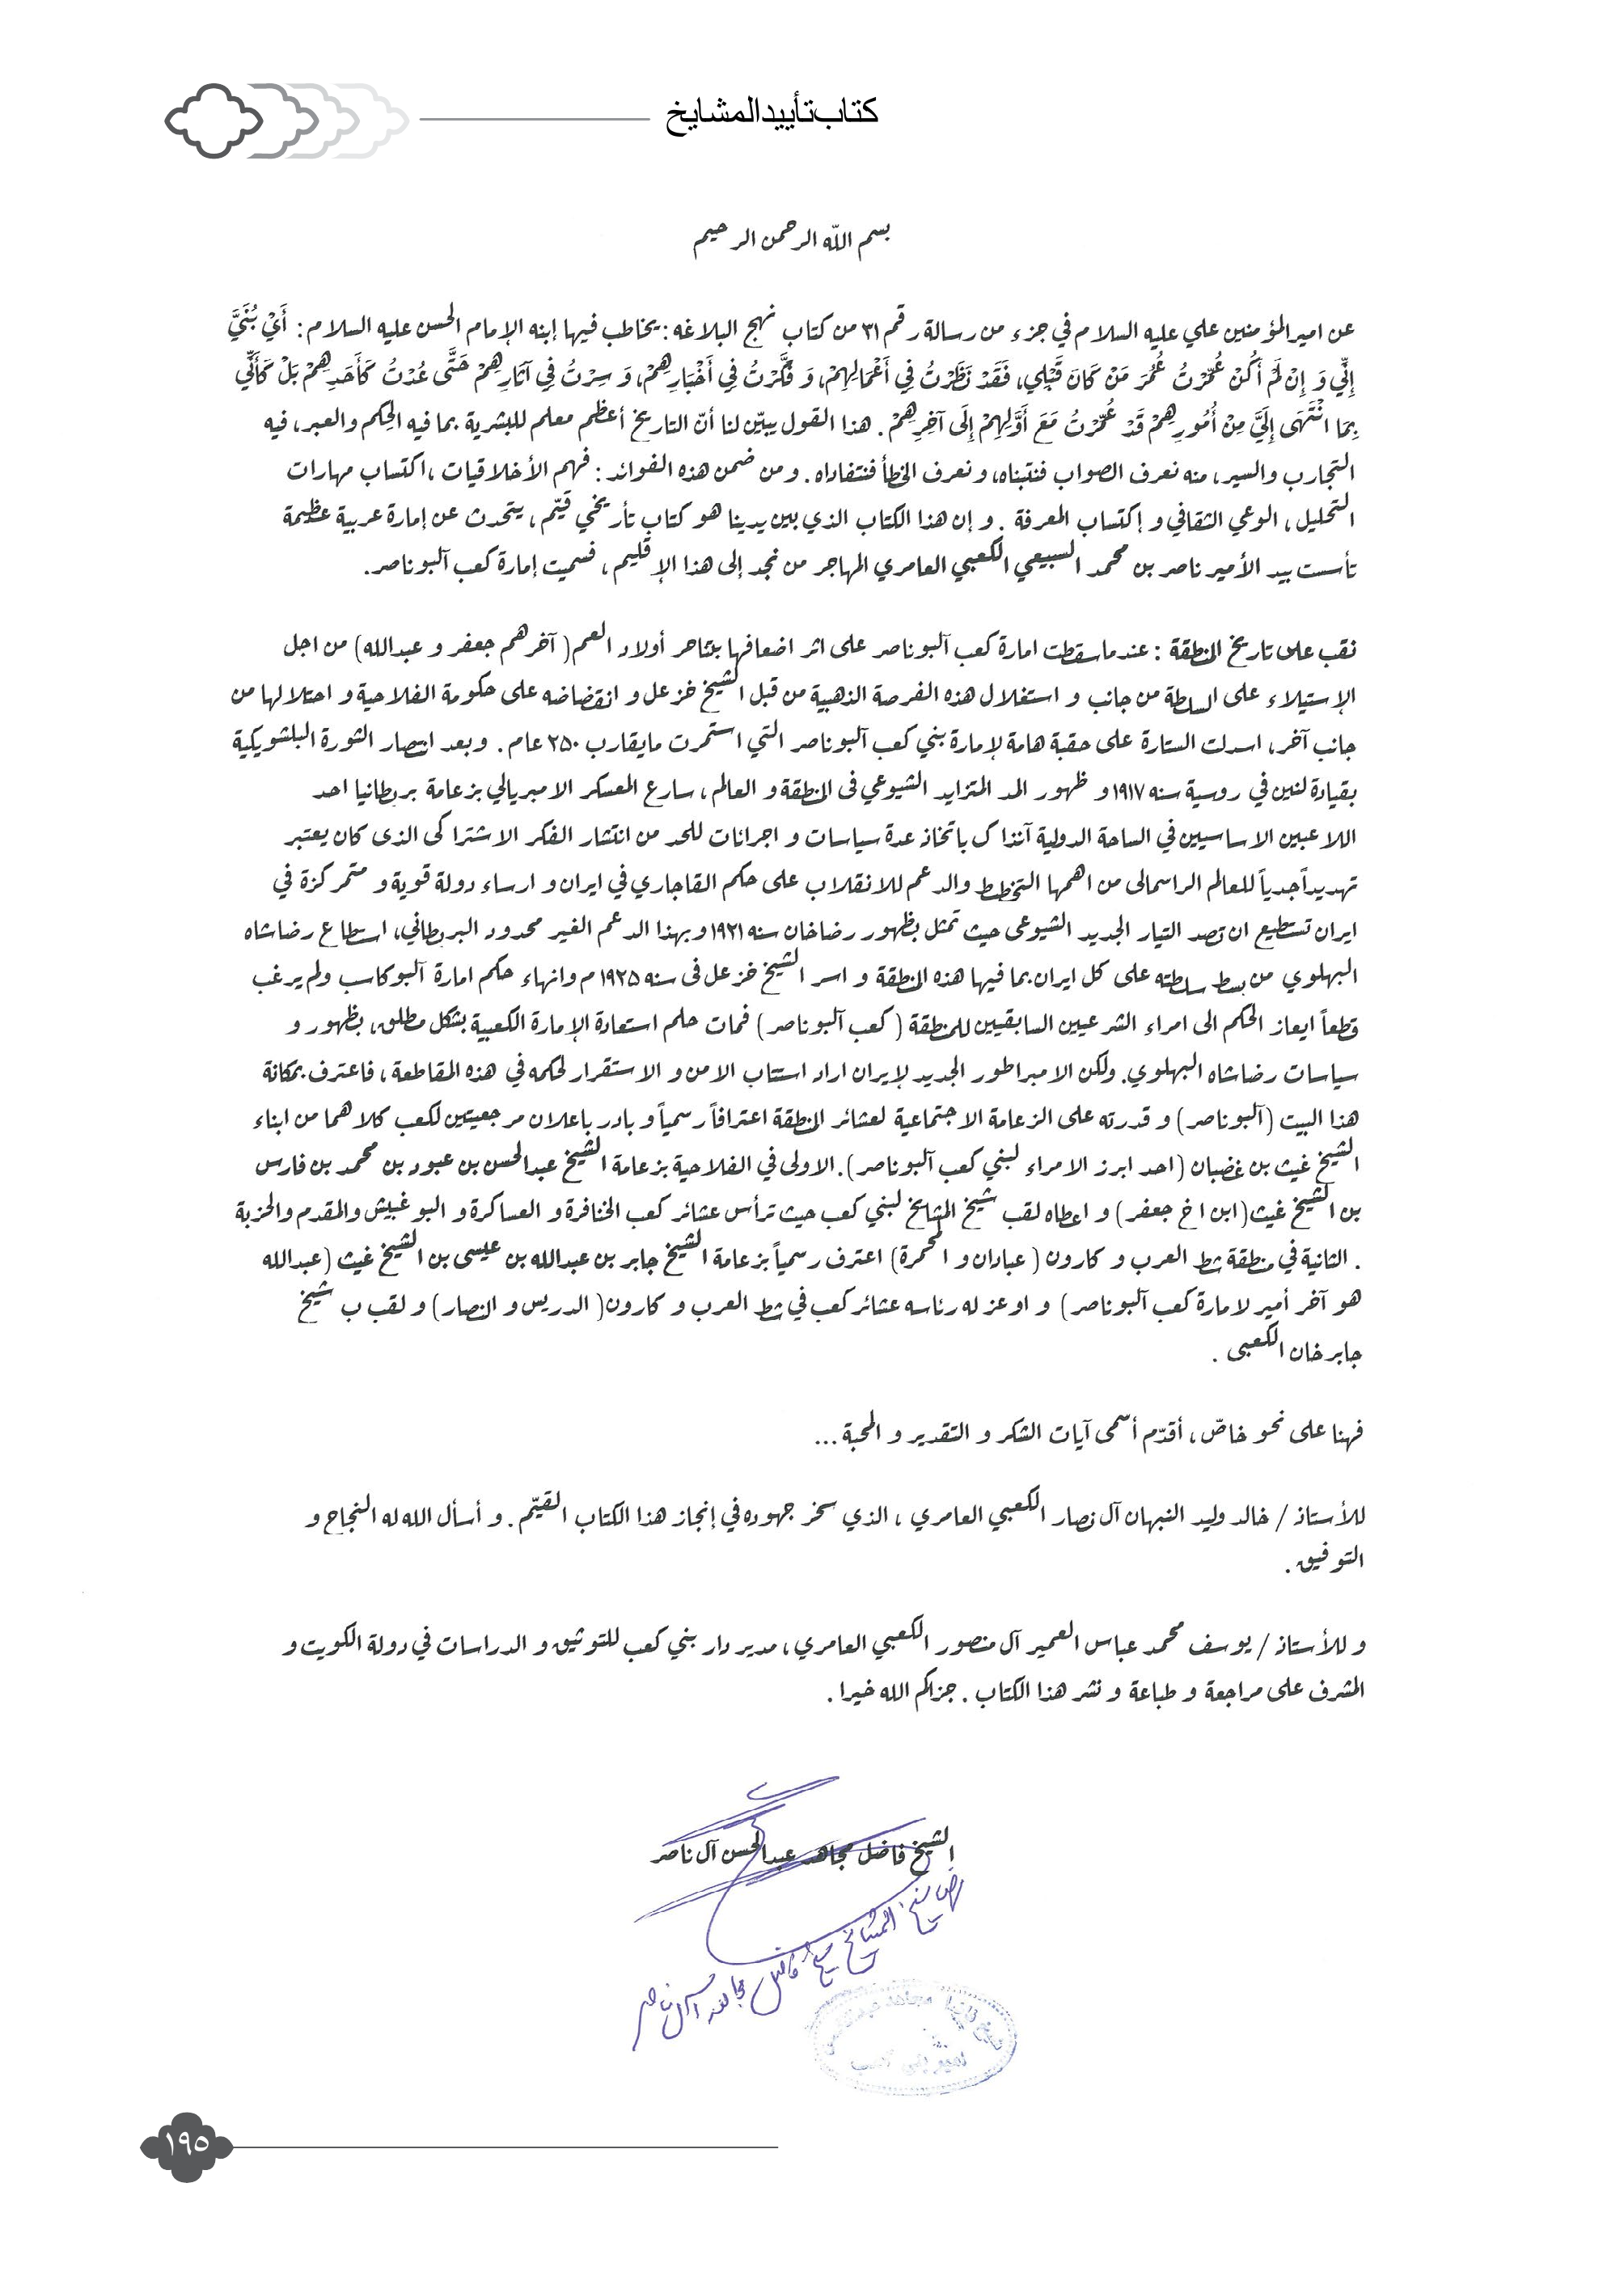 كتاب تأييد المشايخ
بسم الله الرحمن الرحيم
عن امير المؤمنين علي عليه السلام في جزء من رسالة رقم ٣١ من كتاب نهج البلاغه: يخاطب فيها إبنه الإمام الحسن عليه السلام: أَيْ بُنَيَّ
إِنِّي وَ إِنْ لَمْ أَكُنْ عُمِّرْتُ عُمُرَ مَنْ كَانَ قَبْلِي، فَقَدْ نَظَرْتُ فِي أَعْمَالِهِمْ، وَ فَكَّرْتُ فِي أَخْبَارِهِمْ، وَ سِرْتُ فِي آثَارِهِمْ حَتَّى عُدْتُ كَأَحَدِهِمْ بَلْ كَأَنِّي
بِمَا انْتَهَى إِلَيَّ مِنْ أُمُورِهِمْ قَدْ عُمِّرْتُ مَعَ أَوَّلِهِمْ إِلَى آخِرِهِمْ. هذا القول يبيّن لنا أنّ التاريخ أعظم معلم للبشرية بما فيه الحِكم والعبر، فيه
التجارب والسير، منه نعرف الصواب فنتبناه، ونعرف الخطأ فنتفاداه. ومن ضمن هذه الفوائد: فهم الأخلاقيات، اكتساب مهارات
التحليل، الوعي الثقافي و إكتساب المعرفة. و إن هذا الكتاب الذي بين يدينا هو كتاب تأريخي قيّم، يتحدث عن إمارة عربية عظيمة
تأسست بيد الأمير ناصر بن محمد السبيعي الكعبي العامري المهاجر من نجد إلى هذا الإقليم، فسميت إمارة كعب آلبوناصر.
نقب على تاريخ المنطقة: عندما سقطت امارة كعب آلبوناصر على اثر اضعافها بتناحر أولاد العم (آخرهم جعفر و عبدالله) من اجل
الإستيلاء على السلطة من جانب و استغلال هذه الفرصة الذهبية من قبل الشيخ خزعل و انقضاضه على حكومة الفلاحية و احتلالها من
جانب آخر، اسدلت الستارة على حقبة هامة لإمارة بني كعب آلبوناصر التي استمرت مايقارب ٢٥٠ عام. وبعد انتصار الثورة البلشويكية
بقيادة لنين في روسية سنه ١٩١٧ و ظهور المد المتزايد الشيوعي فى المنطقة و العالم، سارع المعسكر الامبريالي بزعامة بريطانيا احد
اللاعبين الاساسيين في الساحة الدولية آنذاك باتخاذ عدة سياسات و اجرائات للحد من انتشار الفكر الاشتراكى الذى كان يعتبر
تهديداً جدياً للعالم الراسمالى من اهمها التخطيط والدعم للانقلاب على حكم القاجاري في ايران و ارساء دولة قوية و متمركزة في
ايران تستطيع ان تصد التيار الجديد الشيوعى حيث تمثل بظهور رضاخان سنه ١٩٢١ وبهذا الدعم الغير محدود البريطاني، استطاع رضاشاه
البهلوي من بسط سلطته على كل ايران بما فيها هذه المنطقة و اسر الشيخ خزعل فى سنه ١٩٢٥ م وانهاء حكم امارة آلبوكاسب ولم يرغب
قطعاً ايعاز الحكم الى امراء الشرعيين السابقيين للمنطقة (كعب آلبوناصر) فمات حلم استعادة الإمارة الكعبية بشكل مطلق، بظهور و
سياسات رضاشاه البهلوي. ولكن الامبراطور الجديد لإيران اراد استتاب الامن و الاستقرار لحكمه في هذه المقاطعة، فاعترف بمكانة
هذا البيت (آلبوناصر) و قدرته على الزعامة الاجتماعية لعشائر المنطقة اعترافاً رسمياً و بادر باعلان مرجعيتين لكعب كلاهما من ابناء
الشيخ غيث بن غضبان (احد ابرز الامراء لبني كعب آلبوناصر). الاولى في الفلاحية بزعامة الشيخ عبدالحسن بن عبود بن محمد بن فارس
بن الشيخ غيث (ابن اخ جعفر) و اعطاه لقب شيخ المشايخ لبني كعب حيث ترأس عشائر كعب الخنافرة و العساكرة و البوغبيش والمقدم والحزبة
. الثانية في منطقة شط العرب و كارون (عبادان و المحمرة) اعترف رسمياً بزعامة الشيخ جابر بن عبدالله بن عيسى بن الشيخ غيث (عبدالله
هو آخر أمير لامارة كعب آلبوناصر) و اوعز له رئاسه عشائر كعب في شط العرب و كارون (الدريس و النصار) و لقب ب شيخ
جابر خان الكعبى.
فهنا على نحو خاصّ، أقدّم أسمى آيات الشكر و التقدير و المحبة...
للأستاذ / خالد وليد النبهان آل نصار الكعبي العامري، الذي سخر جهوده في إنجاز هذا الكتاب القيّم. و أسأل الله له النجاح و
التوفيق.
و للأستاذ / يوسف محمد عباس العمير آل منصور الكعبي العامري، مدير دار بني كعب للتوثيق و الدراسات في دولة الكويت و
المشرف على مراجعة و طباعة و نشر هذا الكتاب. جزاكم الله خيرا.
الشيخ فاضل مجاهد عبدالحسن آل ناصر
شيخ المشايخ شيخ فاضل مجاهد آل ناصر
١٩٥